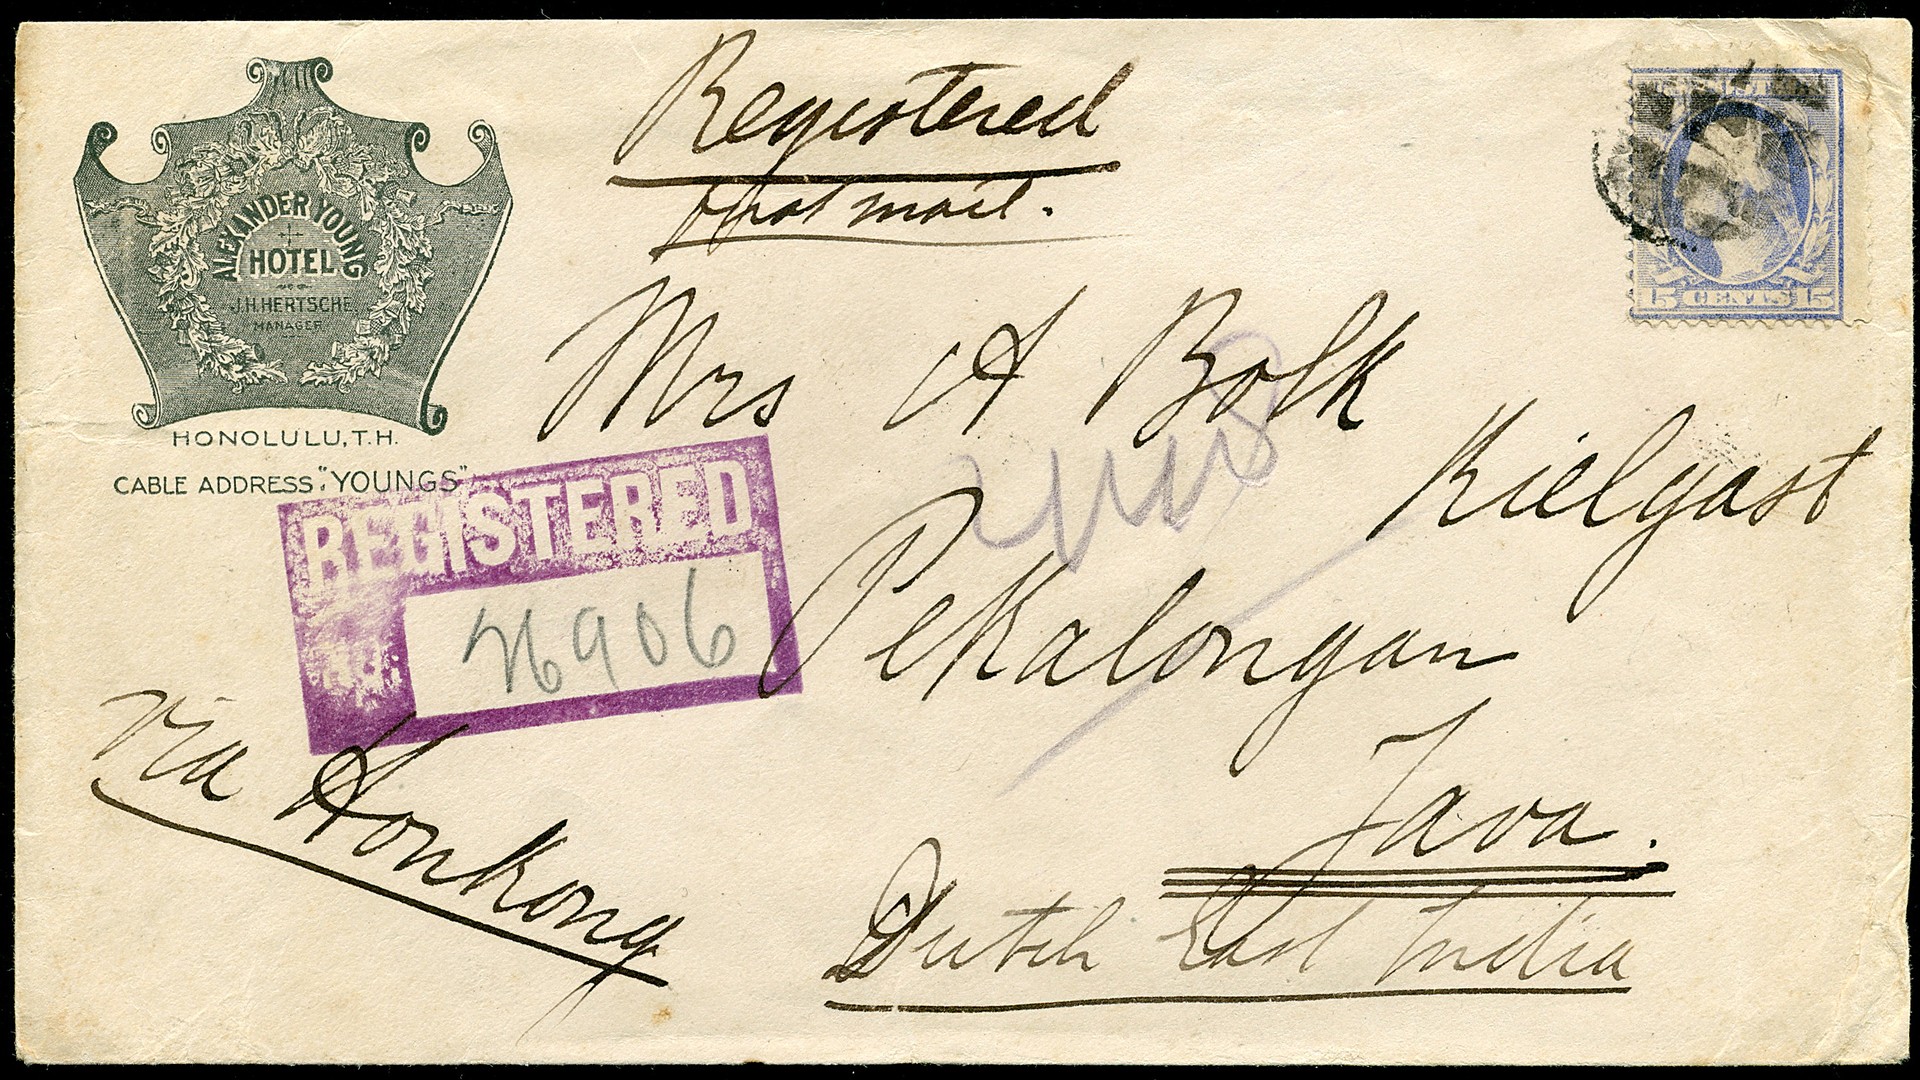 ALEXANDER YOUNG
HOTEL
J.H. HERTSCHE.
MANAGER
HONOLULU, T.H.
CABLE ADDRESS: "YOUNGS"
Registered
first mail.
15 CENTS 15
Mrs A Bolk
Kielgast
REGISTERED
No.
26906
Pekalongan
Java.
Dutch East India
Via Honkong